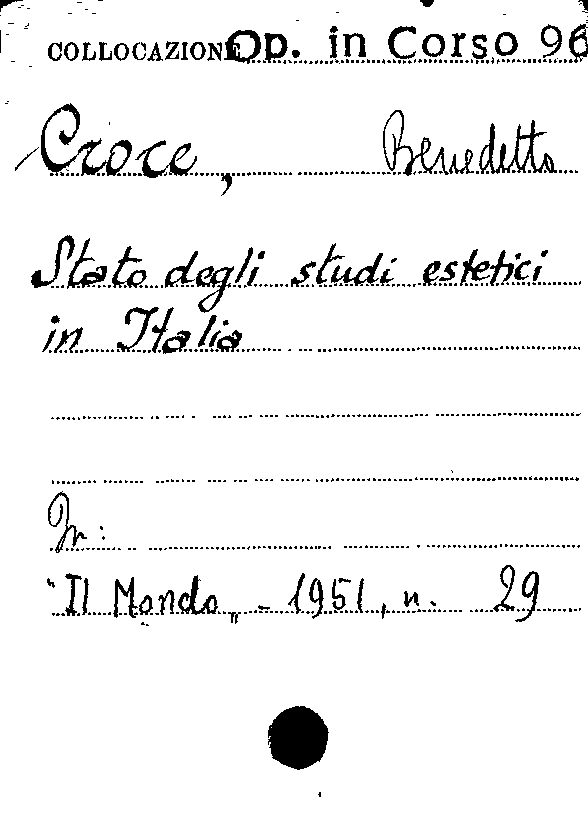 COLLOCAZIONE Op. in Corso 96
Croce, Benedetto
Stato degli studi estetici
in Italia
In:
"Il Mondo„ - 1951, n. 29